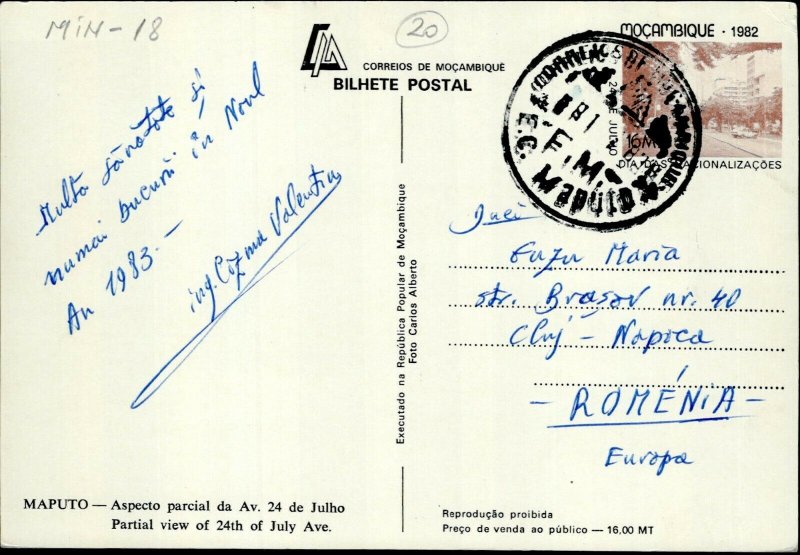 MIN-18
20
CORREIOS DE MOÇAMBIQUE
BILHETE POSTAL
MOÇAMBIQUE · 1982
24 DE JULHO
16 MT
DIA DAS NACIONALIZAÇÕES
Multă sănătate și
numai bucurii în Noul
An 1983.—
ing. Cozma Valentin
Executado na República Popular de Moçambique
Foto Carlos Alberto
Maria
str. Brașov nr. 40
Cluj - Napoca
- ROMÉNIA -
Europa
MAPUTO — Aspecto parcial da Av. 24 de Julho
Partial view of 24th of July Ave.
Reprodução proibida
Preço de venda ao público — 16,00 MT